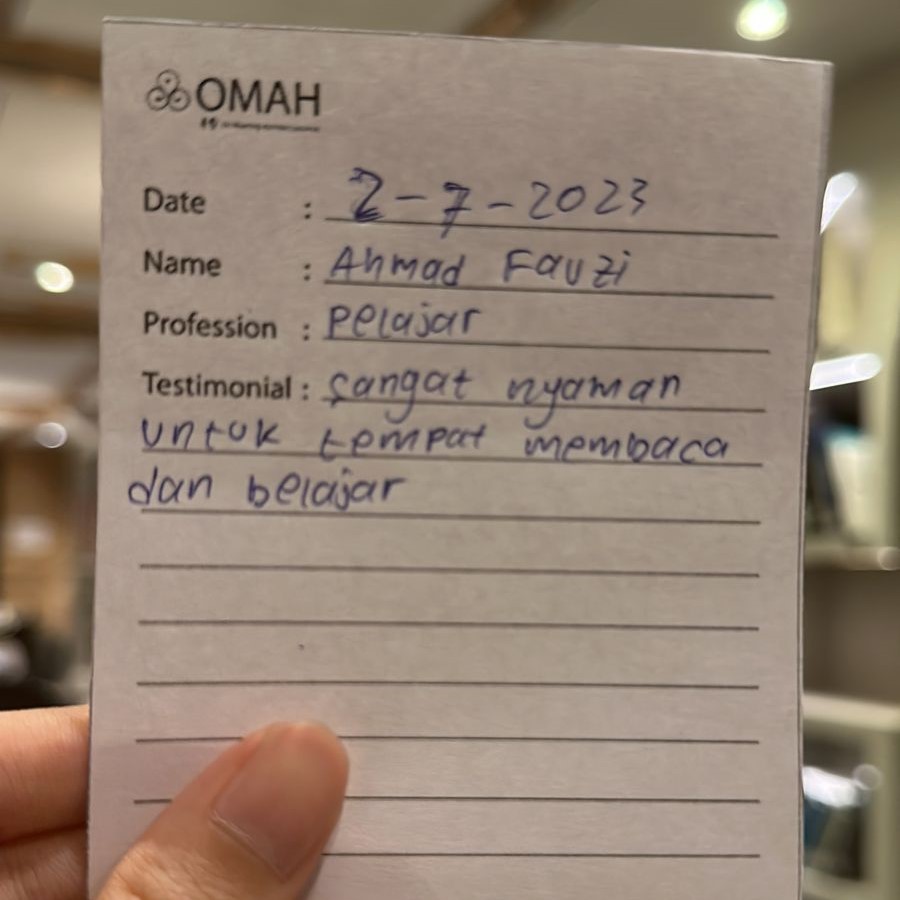 OMAH
Date : 2-7-2023
Name : Ahmad Fauzi
Profession : Pelajar
Testimonial : sangat nyaman
untuk tempat membaca
dan belajar